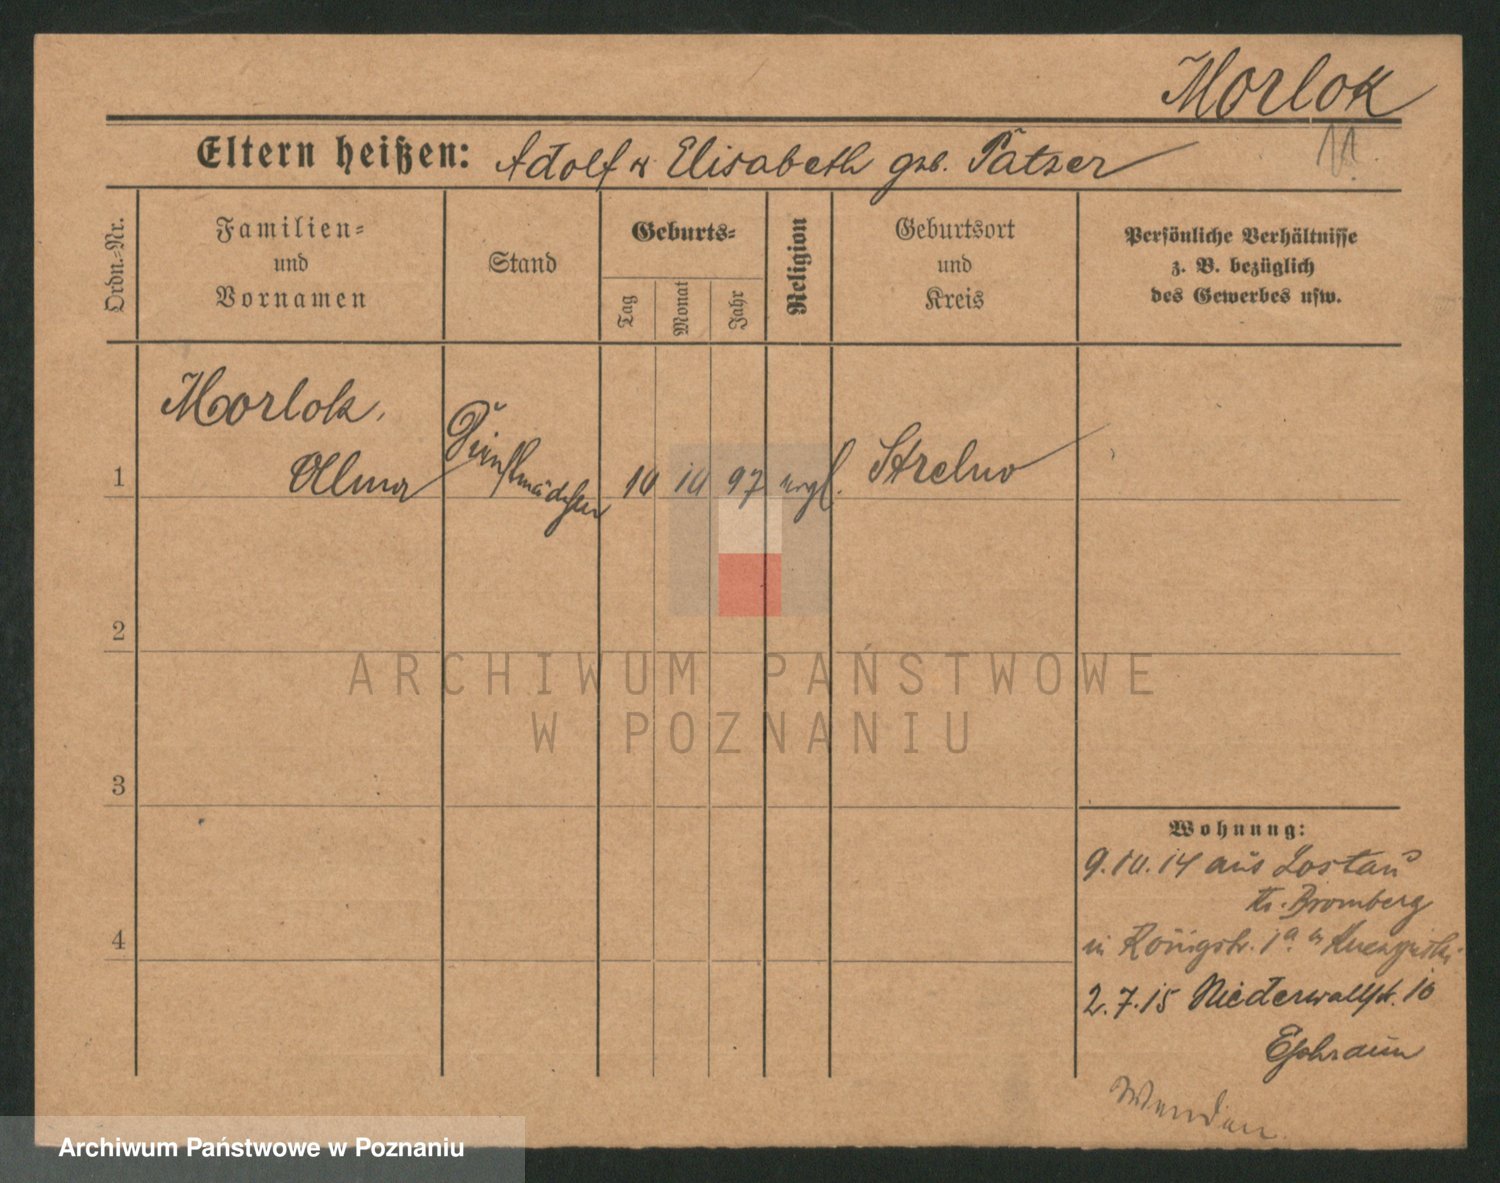 Morlok
Eltern heißen: Adolf u. Elisabeth geb. Pätzer
Ordn.=Nr.
Familien=
und
Vornamen
Stand
Geburts=
Tag
Monat
Jahr
Religion
Geburtsort
und
Kreis
Persönliche Verhältnisse
z. B. bezüglich
des Gewerbes usw.
1
Morlok,
Alma
Dienstmädchen
10 10 97
evgl.
Strelno
2
3
4
ARCHIWUM PAŃSTWOWE
W POZNANIU
Wohnung:
9.10.14 aus
Kr. Bromberg
in Königstr. 1a b/
2.7.15 Niederwallstr. 10
Ephraim
Wenden.
Archiwum Państwowe w Poznaniu